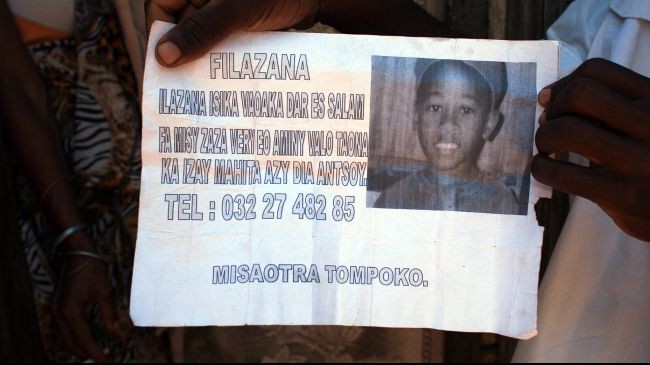 FILAZANA
ILAZANA ISIKA VAOAKA DAR ES SALAM
FA MISY ZAZA VERY EO AMINY VALO TAONA
KA IZAY MAHITA AZY DIA ANTSOY.
TEL : 032 27 482 85
MISAOTRA TOMPOKO.